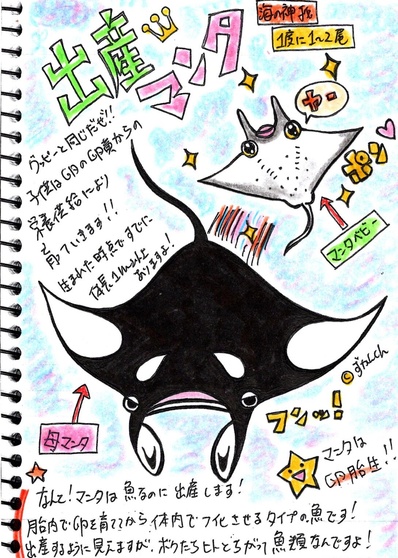 海の神秘
1度に1〜2尾
出産マンタ
ヤー
ポン
マンタベビー
グッピーと同じだぜ!!
子供は卵の卵黄からの
栄養
により
育っていきます!!
生まれた時点ですでに
体長1m以上
ありますよ!
©ずかんくん
フンッ!
母マンタ
マンタは
卵胎生!!
なんと!マンタは魚なのに出産します!
胎内で卵を育ててから体内でフ化させるタイプの魚です!
出産するように見えますが、ボクたちヒトとちがって魚類なんですよ!